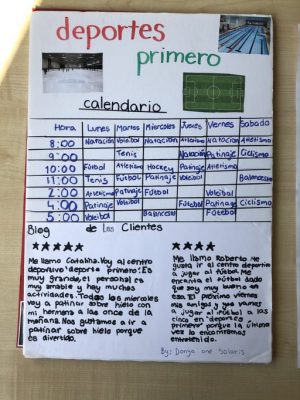 deportes
primero
calendario
Hora Lunes Martes Miercoles Jueves Viernes Sabado
8:00 Natación Voleibol Natación Atletismo Natacion Atletismo
9:00 Tenis Natación Patinaje Ciclismo
10:00 Fútbol Atletismo Hockey Patinaje Atletismo
11:00 Tenis Fútbol Patinaje Voleibol Baloncesto
2:00 Atletismo Patinaje Fútbol Voleibol
4:00 Patinaje Voleibol Fútebol Patinaje Ciclismo
5:00 Voleibol Baloncesto Fútebol
Blog de Los Clientes
Me llamo Catalina. Voy al centro
deportivo "deportes primero". Es
muy grande, el personal es
muy amable y hay muchos
actividades. Todos los miercoles
voy a patinar sobre hielo con
mi hermana a las once de la
mañana. Nos gustamos a ir a
patinar sobre hielo porque
es divertido.
Me llamo Roberto. Me
gusta ir al centro deportivo
a jugar al fútbol. Me
encanta el fútbol dado
que soy muy bueno en
eso. El próximo viernes
mis amigos y yo vamos
a jugar al fútbol a las
cinco en "deportes
primero" porque la última
vez lo encontramos
entretenido.
By: Donya and Solaris